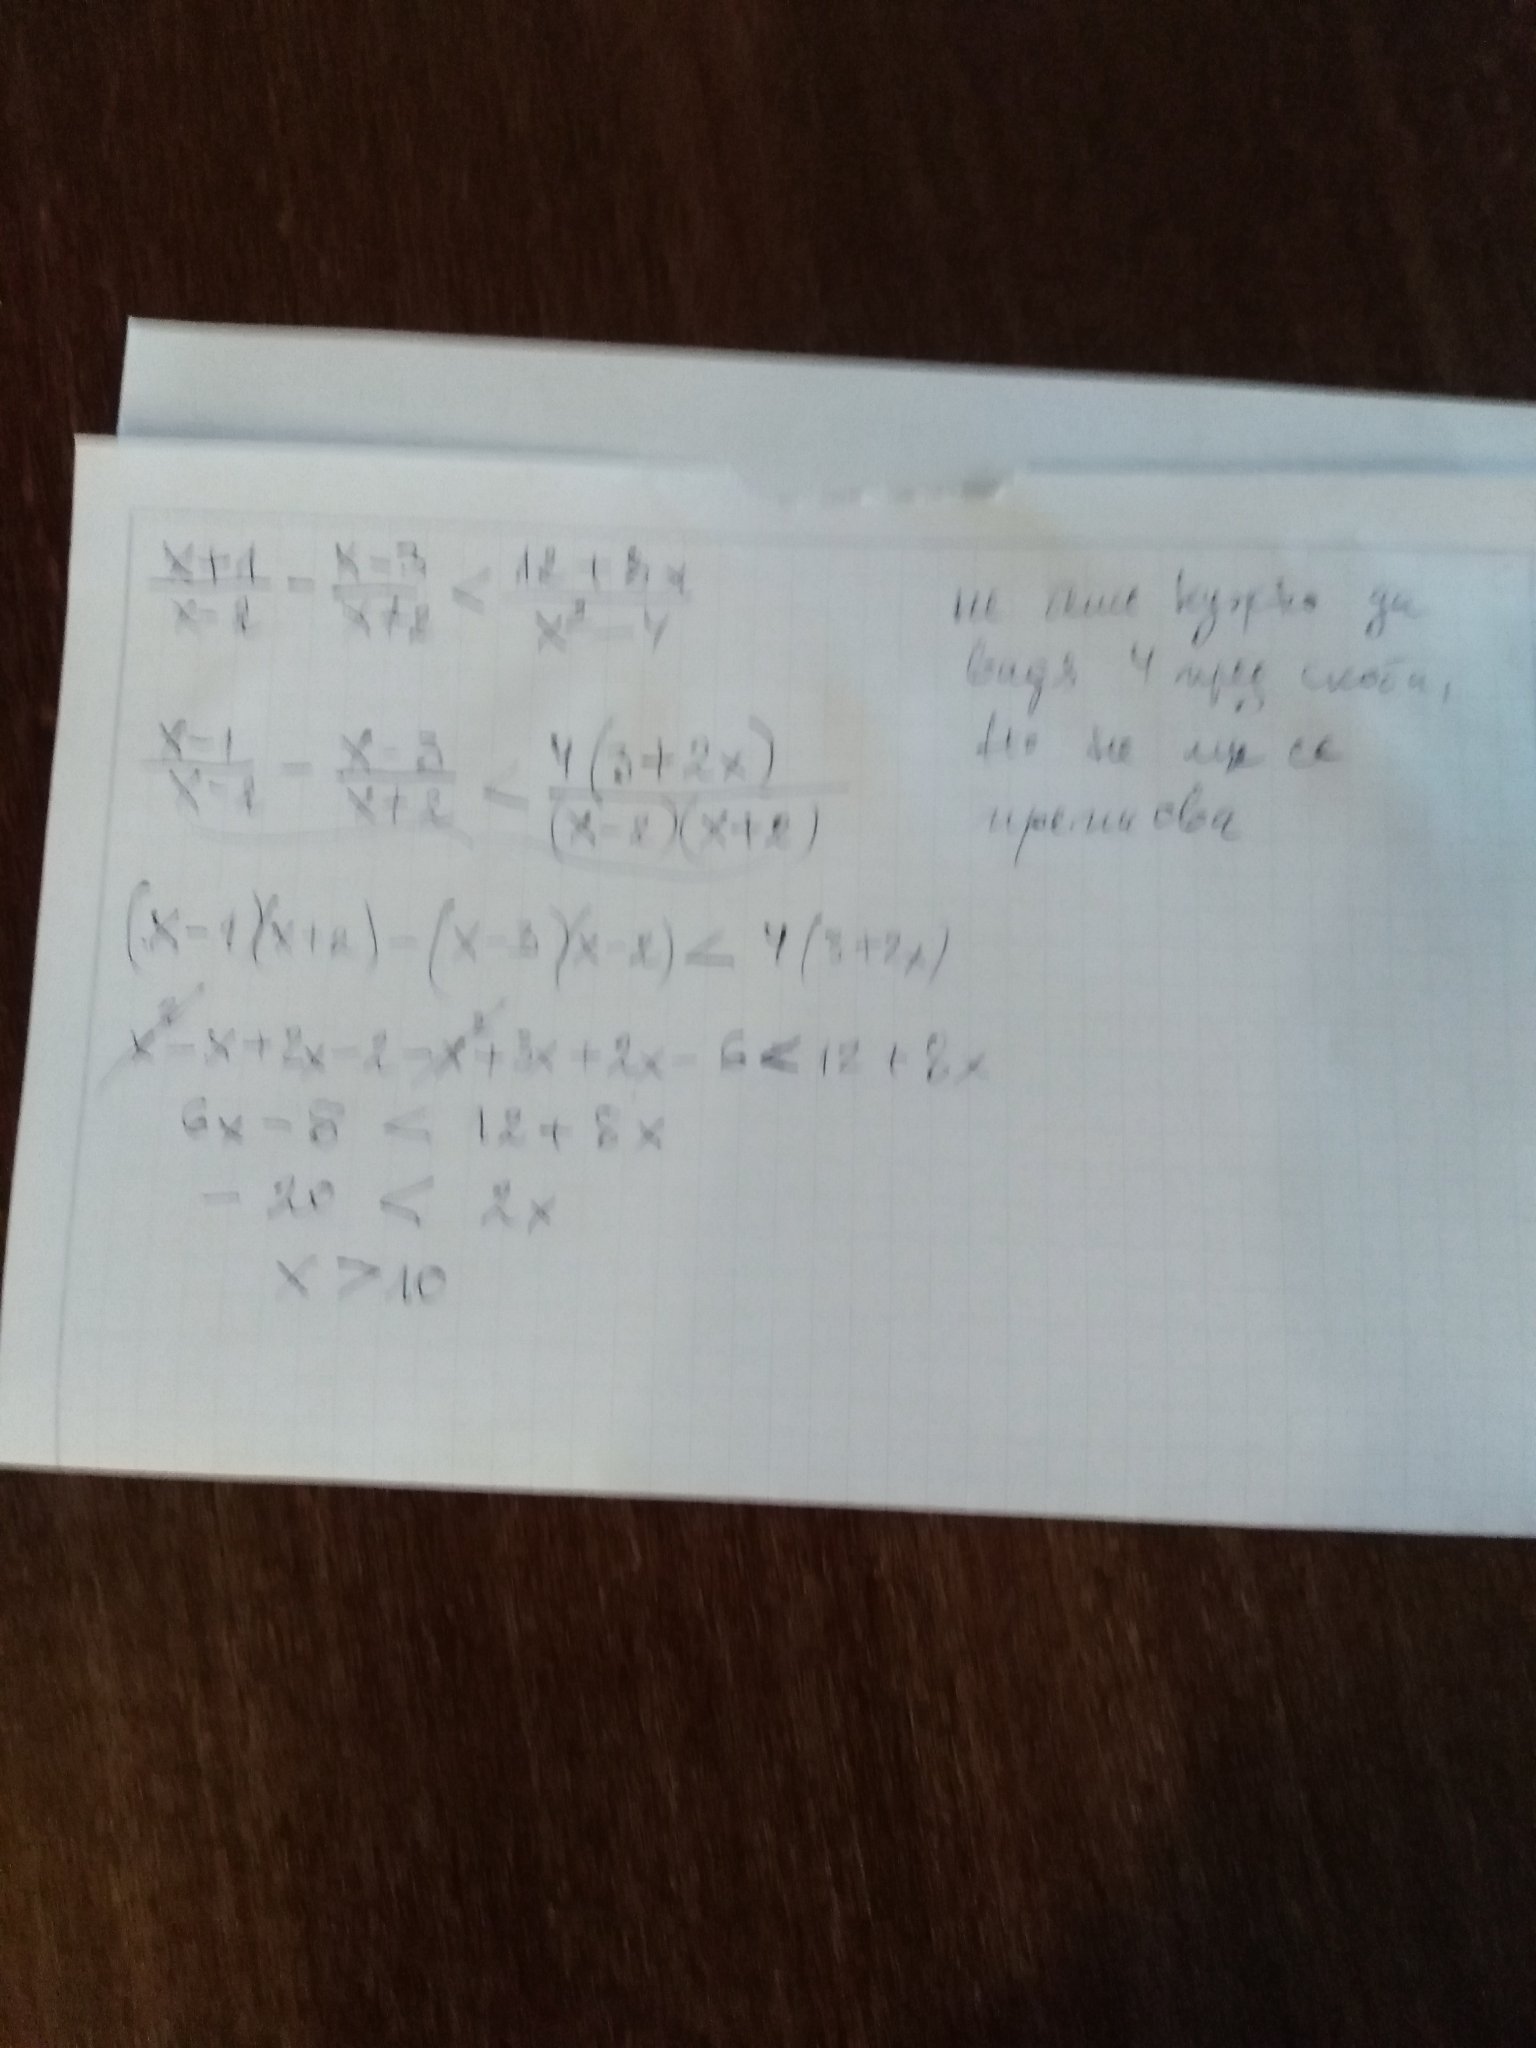 x+1/x-2 - x-3/x+2 < 12+8x/x²-4
x-1/x-2 - x-3/x+2 < 4(3+2x)/(x-2)(x+2)
(x-1)(x+2)-(x-3)(x-2)< 4(3+2x)
x²-x+2x-2-x²+3x+2x-6<12+8x
6x-8 < 12+8x
-20 < 2x
x>10
не беше нужно да
вадя 4 пред скоби,
но не ми се